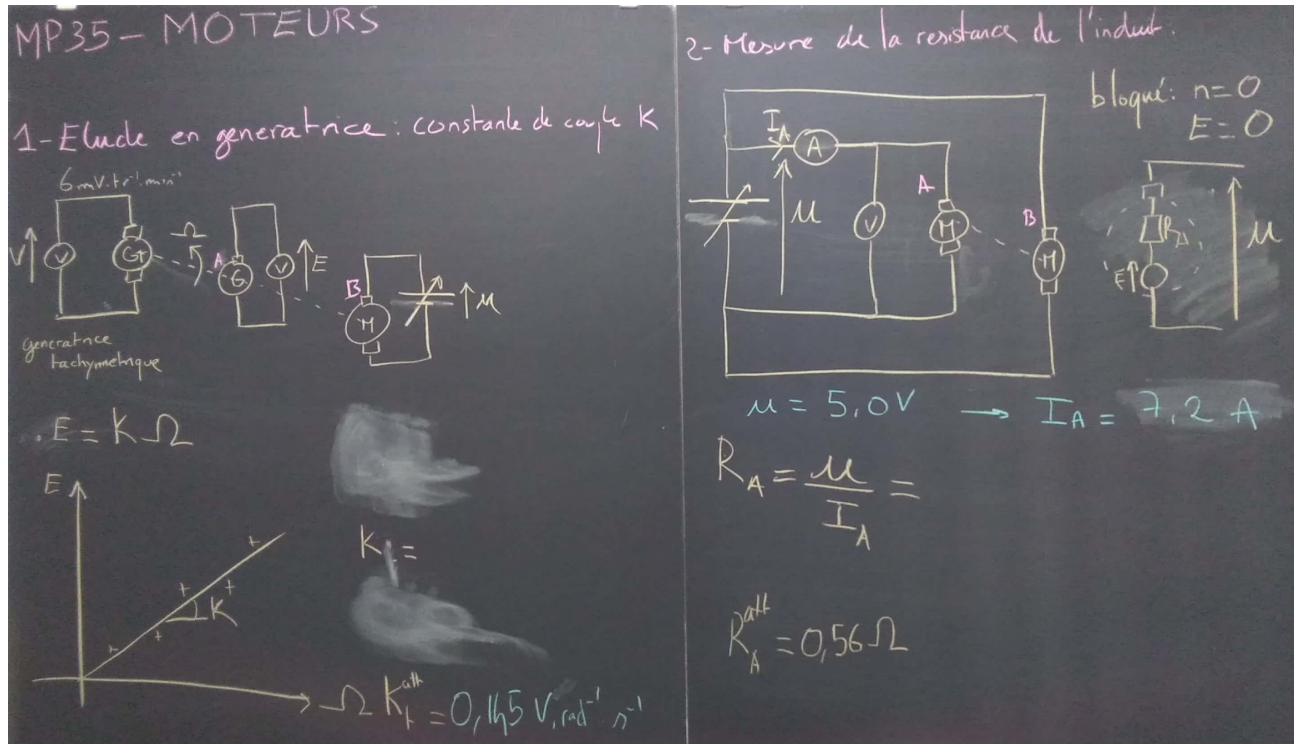 MP35 - MOTEURS
1 - Etude en generatrice : constante de couple K
6 mV.tr⁻¹.min⁻¹
V V Gt Ω A G V E B M u
generatrice
tachymetrique
E = K Ω
E
K
Ω
K =
K att = 0,145 V.rad⁻¹ s⁻¹
2 - Mesure de la resistance de l'induit.
bloqué : n = 0
E = 0
I_A A u V A M B M
R_A E u
u = 5,0 V → I_A = 7,2 A
R_A = u / I_A =
R_A^att = 0,56 Ω